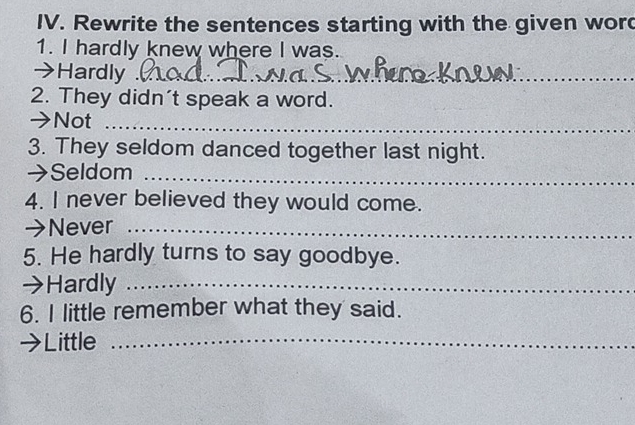 IV. Rewrite the sentences starting with the given word
1. I hardly knew where I was.
→Hardly had I was where knew
2. They didn´t speak a word.
→Not ..........
3. They seldom danced together last night.
→Seldom ..........
4. I never believed they would come.
→Never ..........
5. He hardly turns to say goodbye.
→Hardly ..........
6. I little remember what they said.
→Little ..........